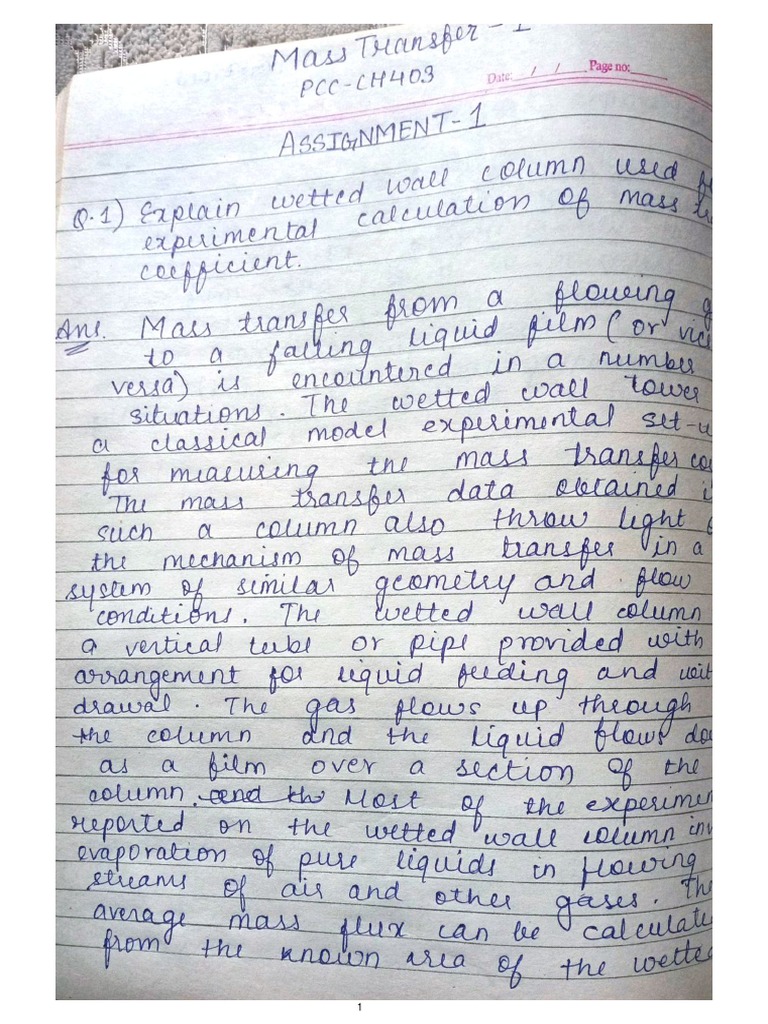 Mass Transfer - 1
PCC-CH403
Date: / / Page no:
ASSIGNMENT-1
Q.1) Explain wetted wall column used
experimental calculation of mass
coefficient.
Ans. Mass transfer from a flowing g
to a falling liquid film (or vice
versa) is encountered in a number
situations. The wetted wall tower
a classical model experimental set-u
for measuring the mass transfer co
The mass transfer data obtained i
such a column also throw light
the mechanism of mass transfer in a
system of similar geometry and flow
conditions. The wetted wall column
a vertical tube or pipe provided with
arrangement for liquid feeding and wit
drawal. The gas flows up through
the column and the liquid flows do
as a film over a section of the
column. and the Most of the experimen
reported on the wetted wall column inv
evaporation of pure liquids in flowing
streams of air and other gases. The
average mass flux can be calculate
from the known area of the wetted
1